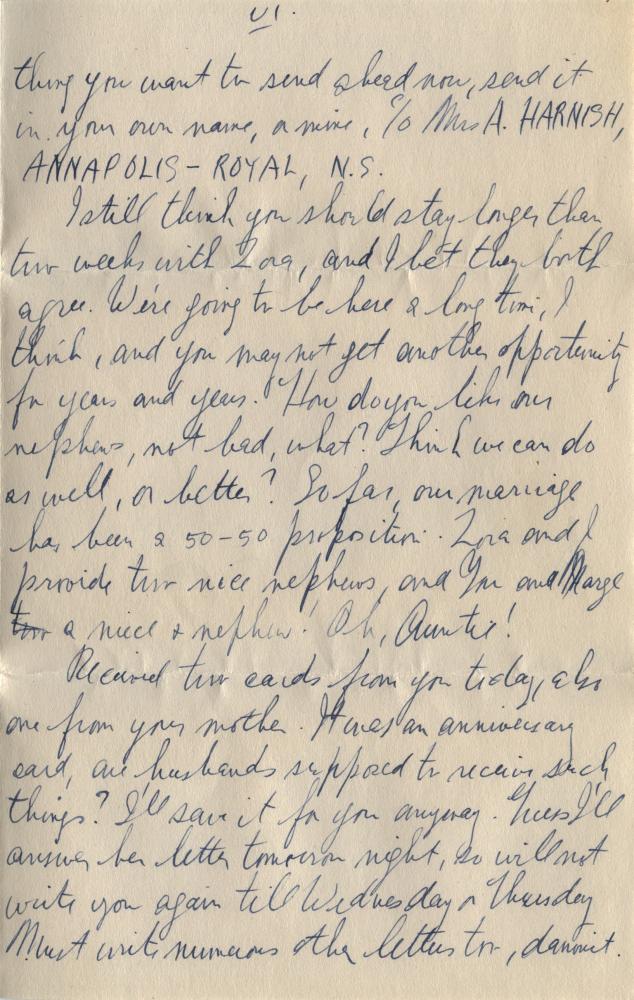 VI.
thing you want to send ahead now, send it
in your own name, or mine, c/o Mrs A. HARNISH,
ANNAPOLIS - ROYAL, N.S.
I still think you should stay longer than
two weeks with Zora, and I bet they both
agree. We're going to be here a long time, I
think, and you may not get another opportunity
for years and years. How do you like our
nephews, not bad, what? Think we can do
as well, or better? So far, our marriage
has been a 50-50 proposition. Zora and I
provide two nice nephews, and You and Marge
two a niece & nephew! Oh, Auntie!
Received two cards from you today, also
one from your mother. It was an anniversary
card, are husbands supposed to receive such
things? I'll save it for you anyway. Guess I'll
answer her letter tomorrow night, so will not
write you again till Wednesday or Thursday
Must write numerous other letters too, damnit.